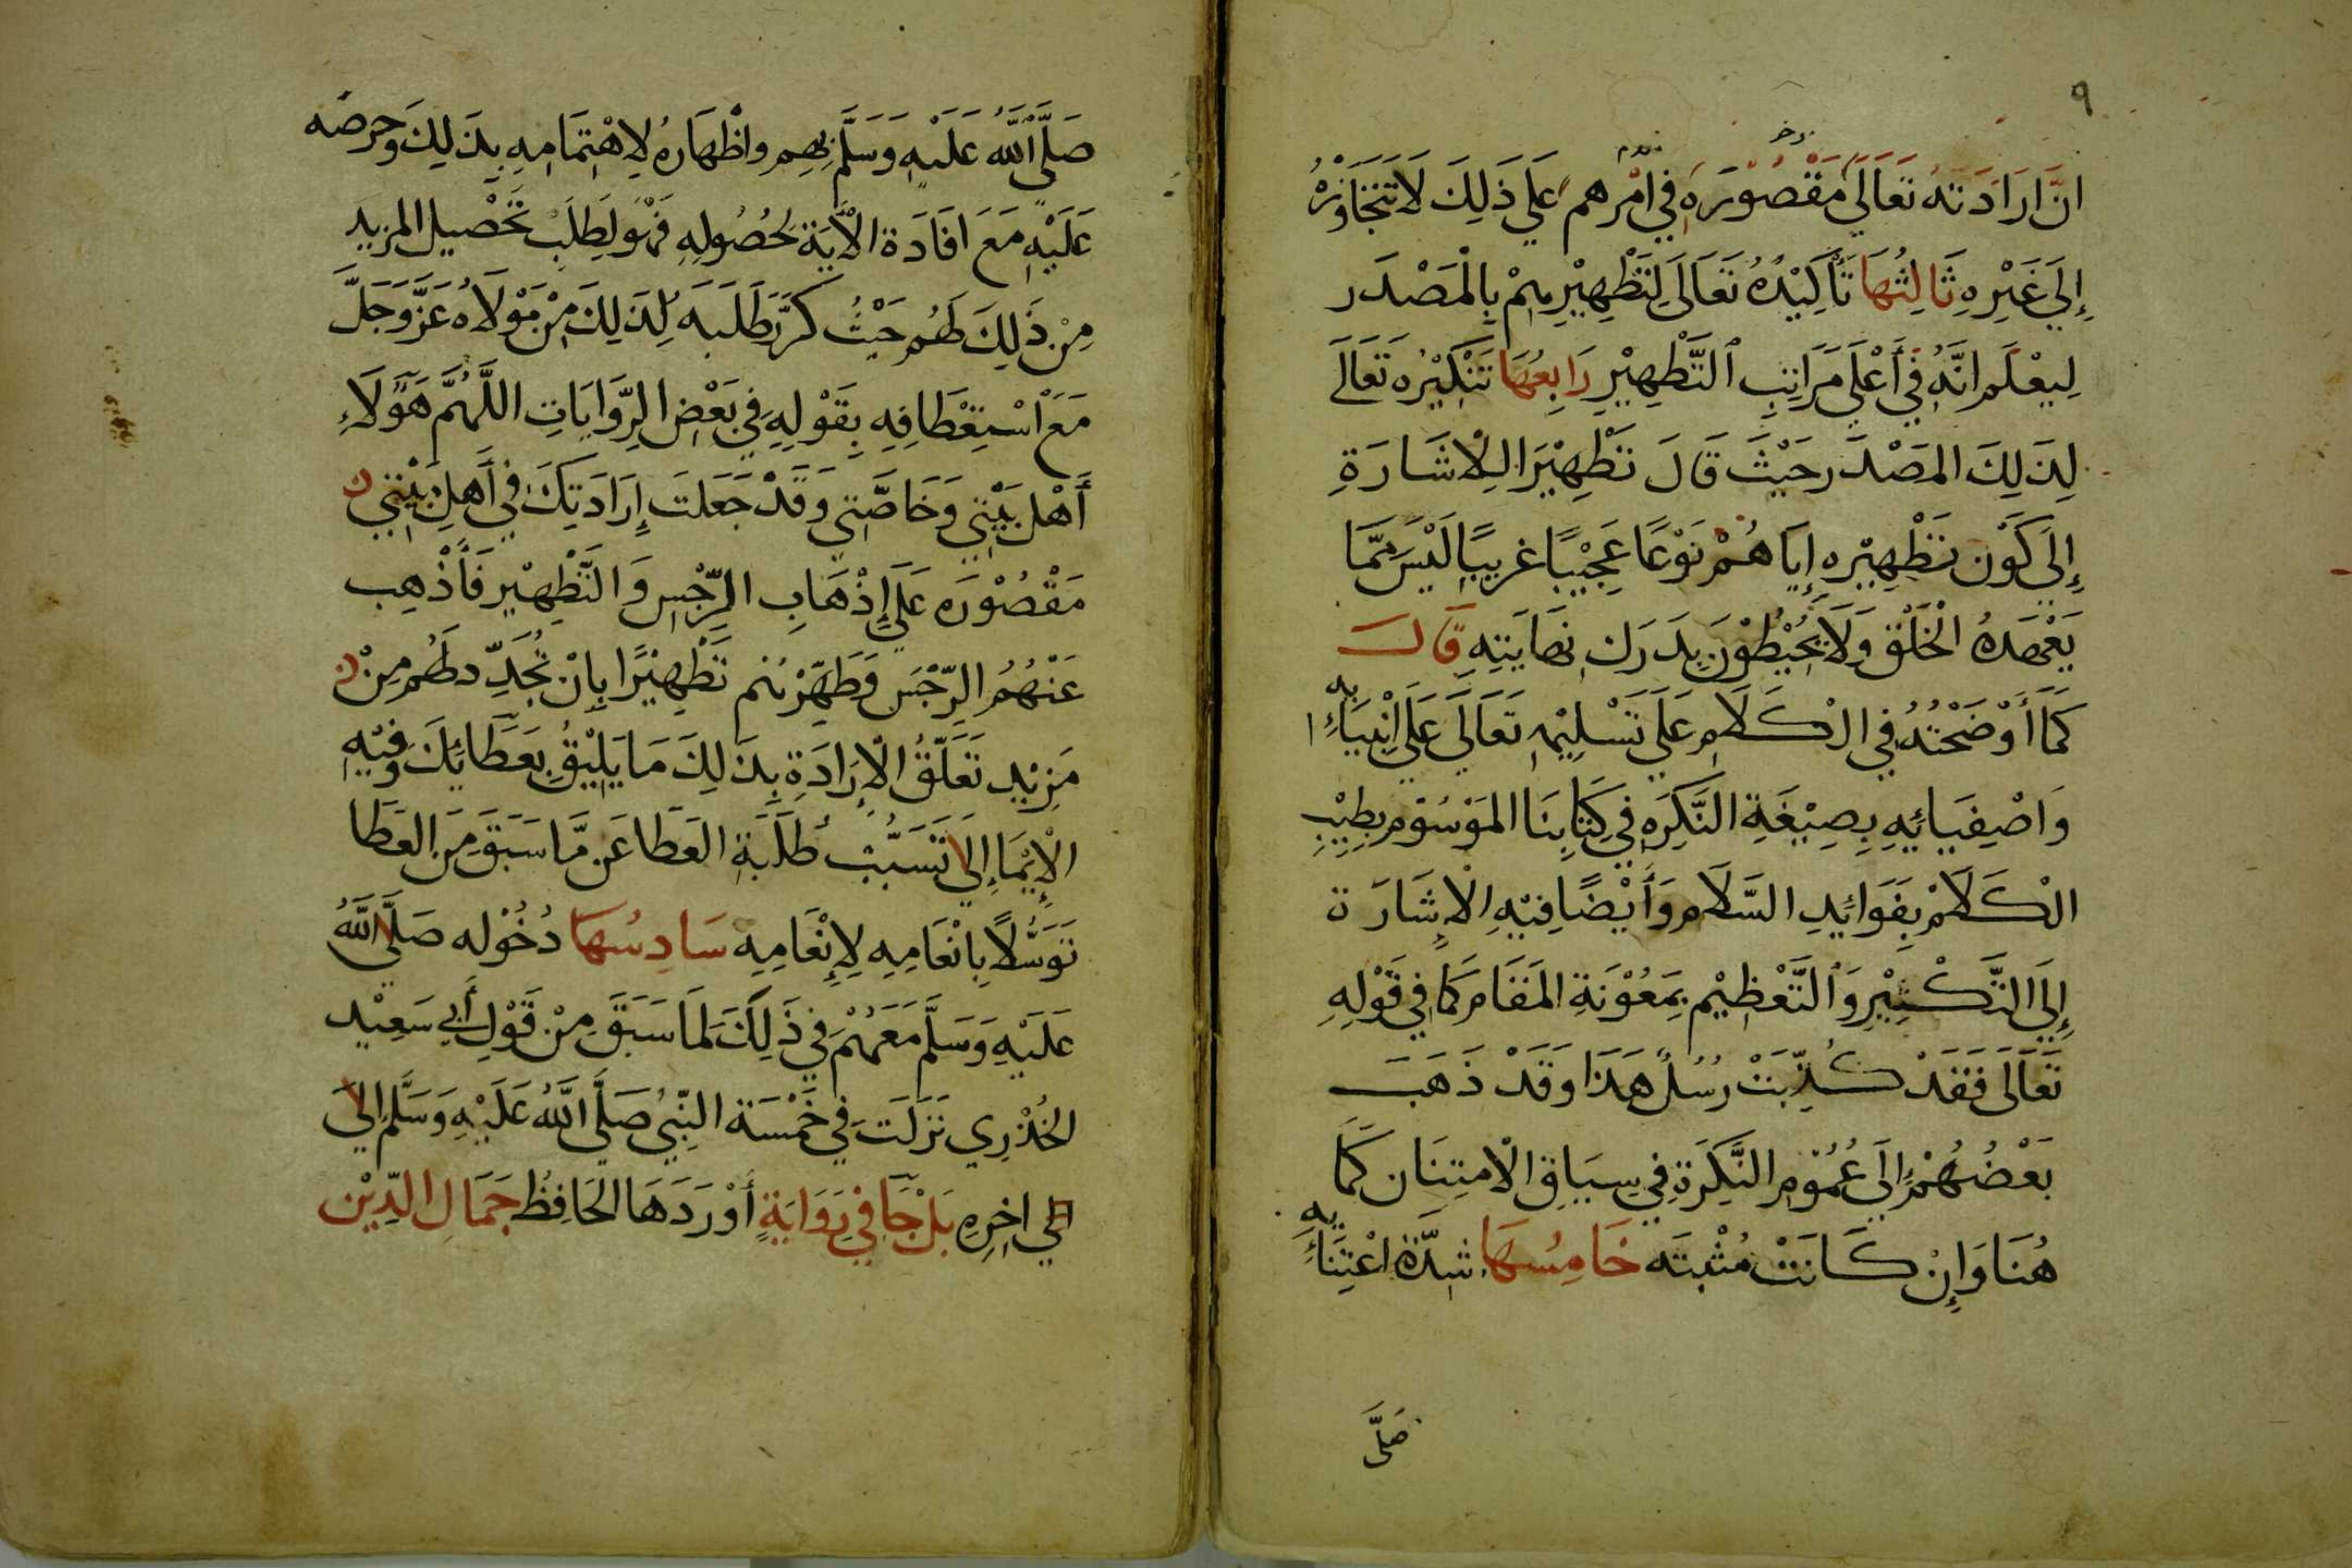 ٩
انَّ ارَادَتَهُ تَعَالَى مَقْصُوْرَة فِي امْرهم عَلي ذَلِكَ لَا تَتَجَاوَزُ
إِلَي غَيْرِهِ ثَالِثُهَا تَأْكِيْدُهُ تَعَالَى لِتَطْهِيْرِهِمْ بِالْمَصْدَر
لِيعْلَم انَّهُ فِي أَعْلَى مَرَاتِبِ التَّطْهِيْرِ رَابِعُهَا تَنْكِيْرُه تَعَالَى
لِذَلِكَ المَصْدَر حَيْثَ قَالَ تَطْهِيْرَا لِلْاشَارَةِ
إِلَى كَوْن تَطْهِيْره إِيَاهُمْ نَوْعًا عَجِيْبًا غريبًا لَيْسَ مِمَّا
يَعْهَدهُ الْخَلْق وَلَا يُحِيْطُوْنَ بِدَرَك نِهَايَتِهِ قَالَ
كَمَا أَوْضَحْتُهُ فِي الْكَلَام عَلَي تَسْلِيْمِهِ تَعَالَى عَلَي انْبِيَائِهِ
وَاصْفِيَائِهِ بِصِيْغَةِ النَّكِرَه فِي كِتَابِنَا المَوْسُوْم بِطِيْبِ
الْكَلَامْ بِفَوَائِدِ السَّلَام وَأَيْضًا فِيْهِ الْاِشَارَة
إِلَى التَّكْثِيْرِ وَالتَّعْظِيْم بِمَعُوْنَةِ المَقَام كَمَا فِي قَوْلِهِ
تَعَالَى فَقَدْ كُذِّبَتْ رُسُلٌ هَذَا وَقَدْ ذَهَبَ
بَعْضُهُمْ إِلَى عُمُوْمِ النَّكِرَةِ فِي سِيَاقِ الْامتِنَان كَمَا
هُنَا وَإِنْ كَانَتْ مُثْبتَه خَامِسُهَا شِدَّة اعْتِنَائِهِ
صَلَّى
صَلَّى اللَّهُ عَلَيْهِ وَسَلَّمَ بِهِم وَاظْهَارهُ لِاهْتِمَامِهِ بِذَلِكَ وَحِرصه
عَلَيْهِ مَعَ افَادَة الْأيَة لِحُصُولِهِ فَهُوَ لِطَلَبِ تَحْصِيل المزيد
مِنْ ذَلِكَ لَهُم حَيْثُ كَرَّرَ طَلَبَهُ لِذَلِكَ مِنْ مَوْلَاهُ عَزَّ وَجَلَّ
مَعَ اسْتِعْطَافِهِ بِقَوْلِهِ فِي بَعْضِ الرِّوَايَاتِ اللَّهُمَّ هَؤُلَاءِ
أَهْل بَيْتِي وَخَاصَّتِي وَقَدْ جَعَلتَ إِرَادَتِكَ فِي أَهلِ بَيْتِي
مَقْصُوْرَه عَلَي إِذْهَابِ الرِّجْسِ وَالتَّطْهِيْر فَأَذْهِب
عَنْهُمُ الرِّجْسَ وَطَهِّرْهُم تَطْهِيْرًا بِاَنْ تُجَدِّد لَهُم مِنْ
مَزِيْدِ تَعَلّقُ الْإرَادَةِ بِذَلِكَ مَا يَلِيْقُ بِعَطَائِكَ وَفِيْهِ
الْإيْمَا إِلَى تَسَبُّبِ طَلَبَةِ العَطَا عَن مَّا سَبَقَ مِنَ العَطَا
تَوَسُّلًا بِانْعَامِهِ لِإنْعَامِهِ سَادِسُهَا دُخُوْله صَلَّى اللَّهُ
عَلَيْهِ وَسَلَّمَ مَعَهُمْ فِي ذَلِكَ لِمَا سَبَقَ مِنْ قَوْلِ أَبِي سَعِيْد
الخُدْرِي نَزَلَتَ فِي خَمْسَة النَّبِيُ صَلَّى اللَّهُ عَلَيْهِ وَسَلَّم إلى
إلي اخِرِهِ بَلْ جَا فِي رِوَايَةٍ أَوْرَدَهَا الحَافِظُ جَمَالِ الدِّيْن